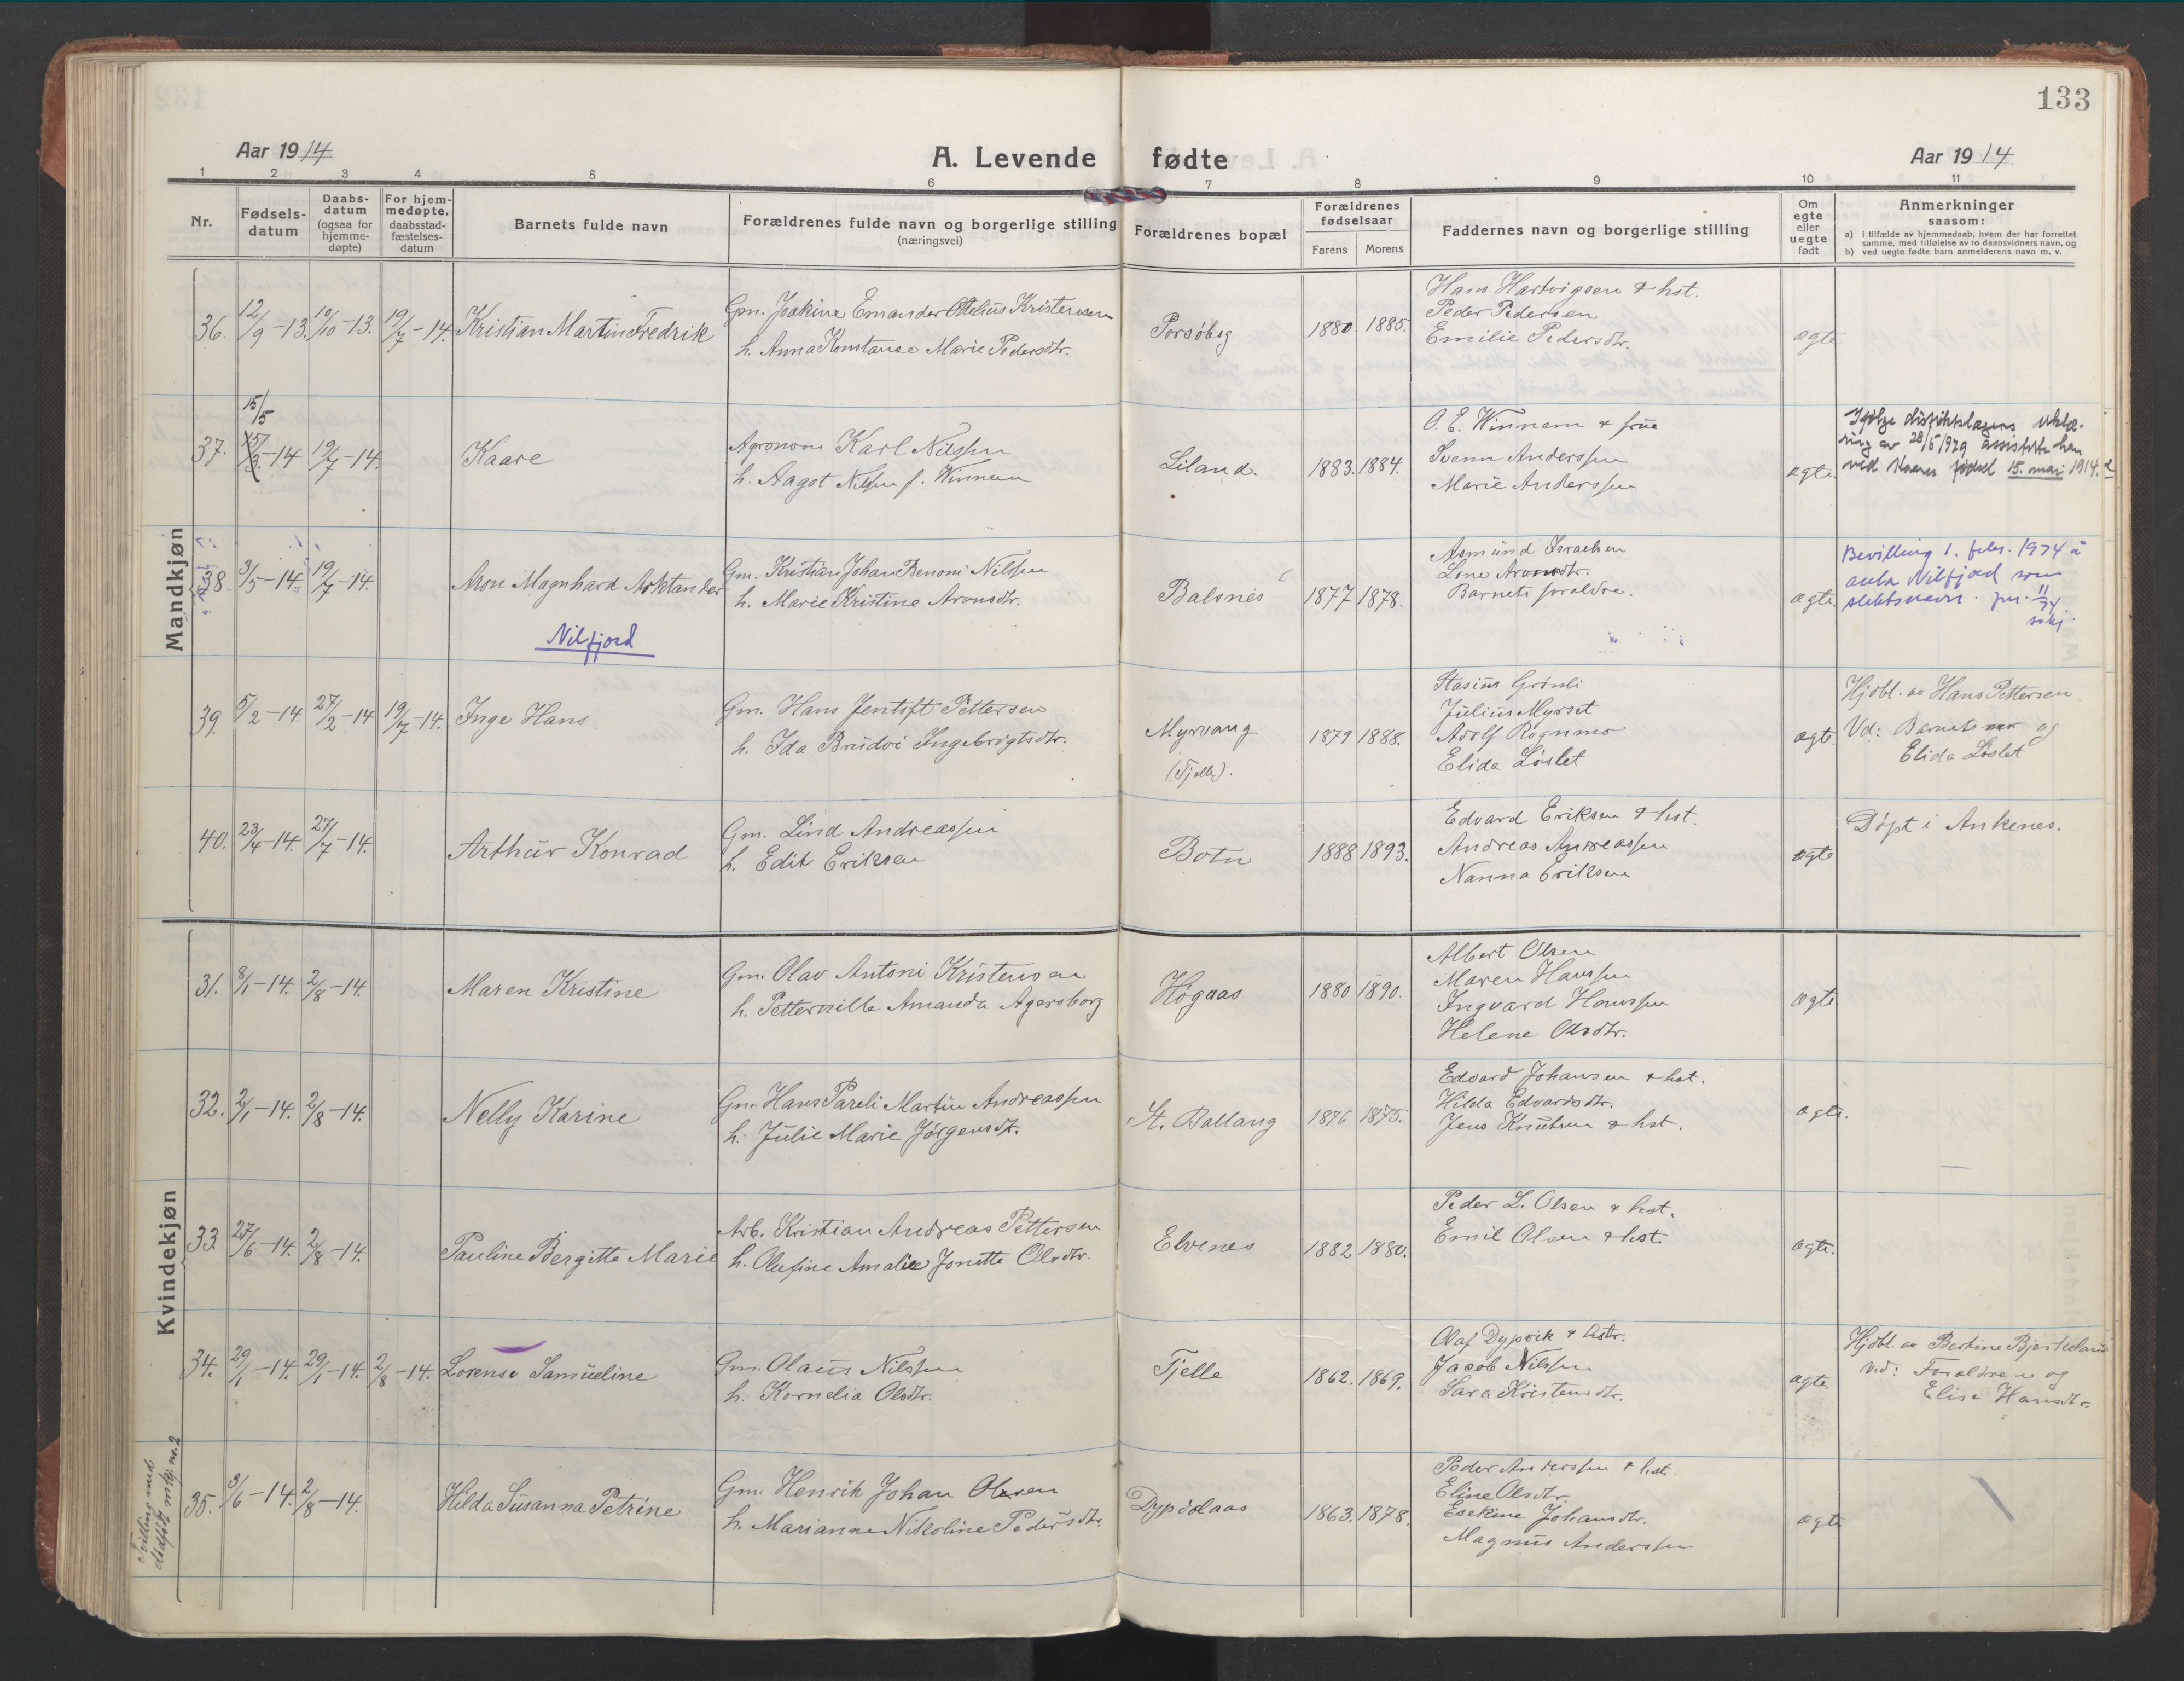 133
Aar 1914
A. Levende fødte
Aar 1914.
1 2 3 4 5 6 7 8 9 10 11
Nr.
Fødsels-
datum
Daabs-
datum
(ogsaa for
hjemme-
døpte)
For hjem-
medøpte,
daabsstad-
fæstelses-
datum
Barnets fulde navn
Forældrenes fulde navn og borgerlige stilling
(næringsvei)
Forældrenes bopæl
Forældrenes
fødselsaar
Farens Morens
Faddernes navn og borgerlige stilling
Om
egte
eller
uegte
født
Anmerkninger
saasom:
a) i tilfælde av hjemmedaab, hvem der har forrettet
samme, med tilføielse av to daabsvidners navn, og
b) ved uegte fødte barn anmelderens navn m. v.
Mandkjøn
36. 12/9-13. 10/10-13. 19/7-14. Kristian Martin Fredrik
Gm. Joakine Emander Otelius Kristensen
h. Anna Konstanse Marie Pedersdtr.
Porsøbog 1880. 1885.
Hans Hartvigsen & hst.
Peder Pedersen
Emilie Pedersdtr.
egte
15/5
37. 15/3-14 19/7-14. Kaare
Agronom Karl Nilssen
h. Aagot Nilssen f. Winnem
Liland. 1883. 1884.
O. E. Winnem & frue
Svenn Anderssen
Marie Anderssen
egte
Ifølge distriktslægens erklæ-
ring av 28/5 1929 assisterte han
ved Kaares fødsel 15. mai 1914.
38 3/5-14. 19/7-14. Aron Magnhard Arktander
Nilfjord
Gm. Kristian Johan Benoni Nilssen
h. Marie Kristine Aronsdtr.
Balsnes 1877 1878.
Asmund Israelsen
Lene Aronsdtr.
Barnets foraldre.
egte
Bevilling 1. febr. 1974 å
anta Nilfjord som
slektsnavn. jnr. 11/74
39. 5/2-14 27/2-14 19/7-14. Inge Hans
Gm. Hans Jentoft Pettersen
h. Ida Brudvi Ingebrigtsdtr.
Myrvang
(Tjelle).
1879 1888.
Stasius Grønli
Julius Myrset
Adolf Rognmo
Elida Løslet
egte
Hjdbt. av Hans Pettersen
Vd: Barnets mor og
Elida Løslet
40. 23/4-14. 27/7-14. Arthur Konrad
Gm. Lind Andreassen
h. Edit Eriksen
Botn 1888 1893.
Edvard Eriksen & hst.
Andreas Andreassen
Nanna Eriksen
egte
Døpt i Ankenes.
Kvindekjøn
31. 8/1-14. 2/8-14. Maren Kristine
Gm. Olav Antoni Kristensen
h. Petternille Amanda Agersborg
Høgaas 1880 1890.
Albert Olsen
Maren Hanssen
Ingvard Hanssen
Helene Olsdtr.
egte
32. 2/1-14. 2/8-14. Nelly Karine
Gm. Hans Pareli Martin Andreassen
h. Julie Marie Jørgensdtr.
St. Ballang 1876 1875.
Edvard Johansen & hst.
Hilda Edvardsdtr.
Jens Knutsen & hst.
egte.
33. 27/6-14. 2/8-14. Pauline Bergitte Marie
Arb. Kristian Andreas Pettersen
h. Olufine Amalie Jonette Olsdtr.
Elvenes 1882 1880.
Peder L. Olsen & hst.
Emil Olsen & hst.
egte.
34. 29/1-14. 29/1-14. 2/8-14. Lorense Samueline
Gm. Olaus Nilssen
h. Kornelia Olsdtr.
Tjelle 1862. 1869.
Olaf Dypvik & hstr.
Jacob Nilssen
Sara Kristensdtr.
egte
Hjdbt. av Bertine Bjerkeland
Vid: Foraldrene og
Elise Hansdtr.
Tvilling med
dødfødt msk. nr. 2
35. 3/6-14. 2/8-14. Hilda Susanna Petrine
Gm. Henrik Johan Olsen
h. Marianne Nikoline Pedersdtr.
Dypdalaas 1863. 1878.
Peder Anderssen & hst.
Eline Olsdtr.
Esekine Johansdtr.
Magnus Anderssen
egte